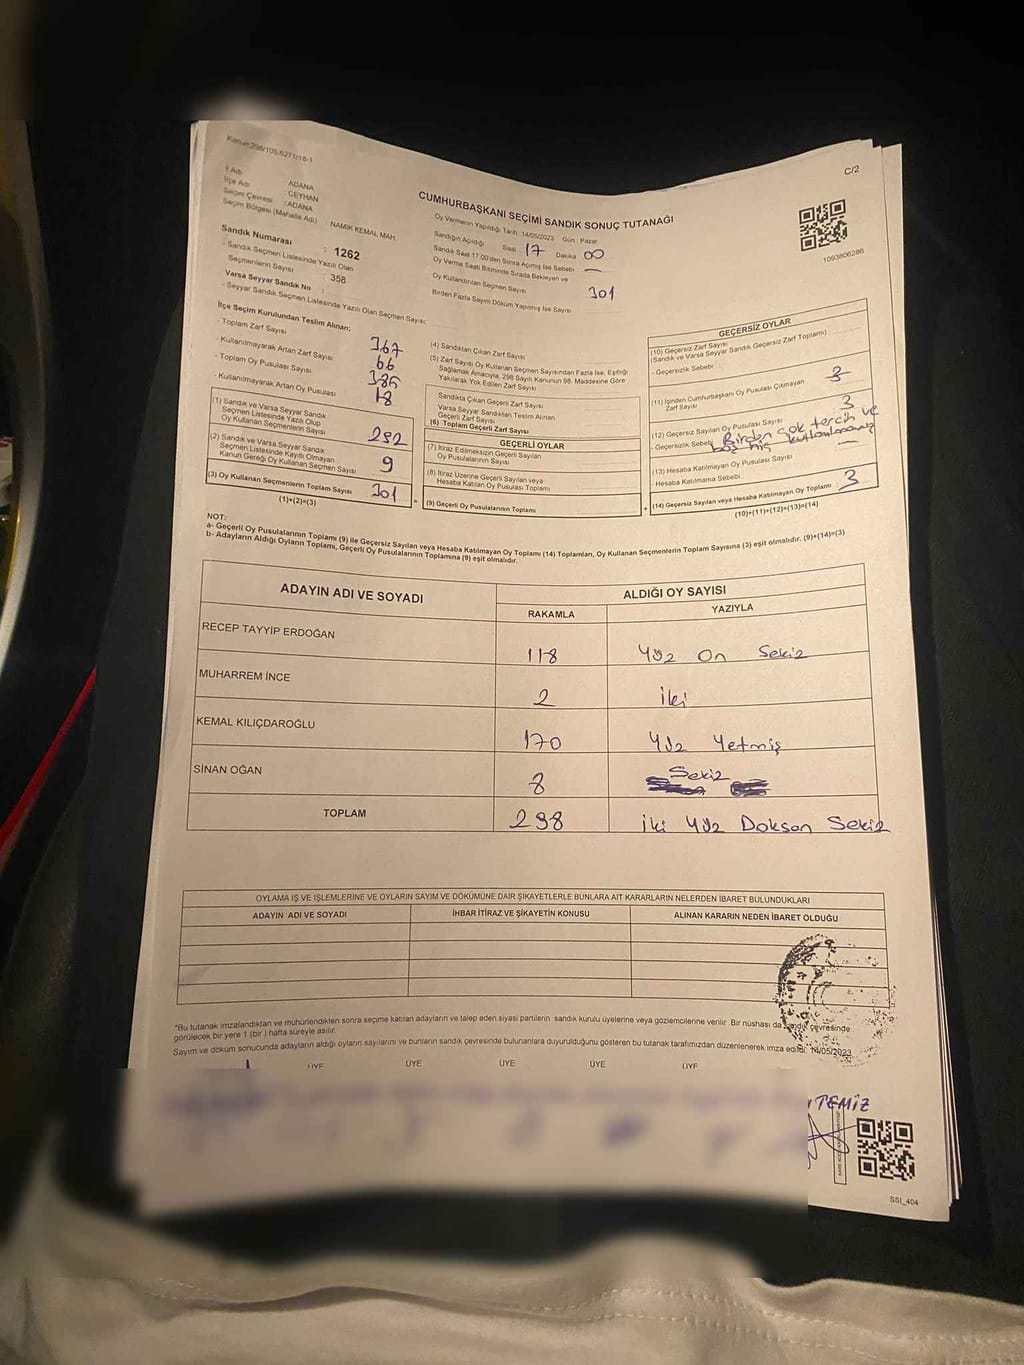 Kanun:298/105,6271/18-1
C/2
İl Adı : ADANA
İlçe Adı : CEYHAN
Seçim Çevresi : ADANA
Seçim Bölgesi (Mahalle Adı) : NAMIK KEMAL MAH.
Sandık Numarası : 1262
- Sandık Seçmen Listesinde Yazılı Olan
Seçmenlerin Sayısı : 358
Varsa Seyyar Sandık No :
- Seyyar Sandık Seçmen Listesinde Yazılı Olan Seçmen Sayısı:
CUMHURBAŞKANI SEÇİMİ SANDIK SONUÇ TUTANAĞI
Oy Vermenin Yapıldığı Tarih: 14/05/2023 Gün : Pazar
Sandığın Açıldığı Saat 17 Dakika 00
Sandık Saat 17:00'den Sonra Açılmış İse Sebebi —
Oy Verme Saati Bitiminde Sırada Bekleyen ve
Oy Kullandırılan Seçmen Sayısı
301
Birden Fazla Sayım Döküm Yapılmış İse Sayısı
1093806286
İlçe Seçim Kurulundan Teslim Alınan;
- Toplam Zarf Sayısı 367
- Kullanılmayarak Artan Zarf Sayısı 66
- Toplam Oy Pusulası Sayısı
- Kullanılmayarak Artan Oy Pusulası 18
(1) Sandık ve Varsa Seyyar Sandık
Seçmen Listesinde Yazılı Olup
Oy Kullanan Seçmenlerin Sayısı 292
(2) Sandık ve Varsa Seyyar Sandık
Seçmen Listesinde Kayıtlı Olmayan
Kanun Gereği Oy Kullanan Seçmen Sayısı 9
(3) Oy Kullanan Seçmenlerin Toplam Sayısı 301
(1)+(2)=(3)
(4) Sandıktan Çıkan Zarf Sayısı
(5) Zarf Sayısı Oy Kullanan Seçmen Sayısından Fazla İse, Eşitliği
Sağlamak Amacıyla, 298 Sayılı Kanunun 98. Maddesine Göre
Yakılarak Yok Edilen Zarf Sayısı
Sandıkta Çıkan Geçerli Zarf Sayısı
Varsa Seyyar Sandıktan Teslim Alınan
Geçerli Zarf Sayısı
(6) Toplam Geçerli Zarf Sayısı
GEÇERLİ OYLAR
(7) İtiraz Edilmeksizin Geçerli Sayılan
Oy Pusulalarının Sayısı
(8) İtiraz Üzerine Geçerli Sayılan veya
Hesaba Katılan Oy Pusulası Toplamı
(9) Geçerli Oy Pusulalarının Toplamı
GEÇERSİZ OYLAR
(10) Geçersiz Zarf Sayısı
(Sandık ve Varsa Seyyar Sandık Geçersiz Zarf Toplamı)
- Geçersizlik Sebebi
(11) İçinden Cumhurbaşkanı Oy Pusulası Çıkmayan
Zarf Sayısı
3
(12) Geçersiz Sayılan Oy Pusulası Sayısı 3
- Geçersizlik Sebebi Birden çok tercih ve
boş hiç kullanılmamış
(13) Hesaba Katılmayan Oy Pusulası Sayısı —
- Hesaba Katılmama Sebebi
(14) Geçersiz Sayılan veya Hesaba Katılmayan Oy Toplamı 3
(10)+(11)+(12)+(13)=(14)
NOT:
a- Geçerli Oy Pusulalarının Toplamı (9) ile Geçersiz Sayılan veya Hesaba Katılmayan Oy Toplamı (14) Toplamları, Oy Kullanan Seçmenlerin Toplam Sayısına (3) eşit olmalıdır. (9)+(14)=(3)
b- Adayların Aldığı Oyların Toplamı, Geçerli Oy Pusulalarının Toplamına (9) eşit olmalıdır.
ADAYIN ADI VE SOYADI ALDIĞI OY SAYISI
RAKAMLA YAZIYLA
RECEP TAYYİP ERDOĞAN 118 Yüz On Sekiz
MUHARREM İNCE 2 İki
KEMAL KILIÇDAROĞLU 170 Yüz Yetmiş
SİNAN OĞAN 8 Sekiz
TOPLAM 298 İki Yüz Doksan Sekiz
OYLAMA İŞ VE İŞLEMLERİNE VE OYLARIN SAYIM VE DÖKÜMÜNE DAİR ŞİKAYETLERLE BUNLARA AİT KARARLARIN NELERDEN İBARET BULUNDUKLARI
ADAYIN ADI VE SOYADI İHBAR İTİRAZ VE ŞİKAYETİN KONUSU ALINAN KARARIN NEDEN İBARET OLDUĞU
*Bu tutanak imzalandıktan ve mühürlendikten sonra seçime katılan adayların ve talep eden siyasi partilerin sandık kurulu üyelerine veya gözlemcilerine verilir. Bir nüshası da sandık çevresinde
görülecek bir yere 1 (bir) hafta süreyle asılır.
Sayım ve döküm sonucunda adayların aldığı oyların sayılarını ve bunların sandık çevresinde bulunanlara duyurulduğunu gösteren bu tutanak tarafımızdan düzenlenerek imza edildi. 14/05/2023
ÜYE ÜYE ÜYE ÜYE ÜYE
TEMİZ
SSI_404